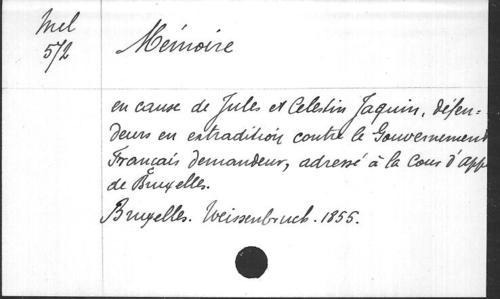 Mel
572
Mémoire
en cause de Jules et Celestin Jaquin, défen-
deurs en extradition contre le Gouvernement
Français demandeur, adressé à la Cour d'App
de Bruxelles.
Bruxelles. Weissenbruch. 1855.